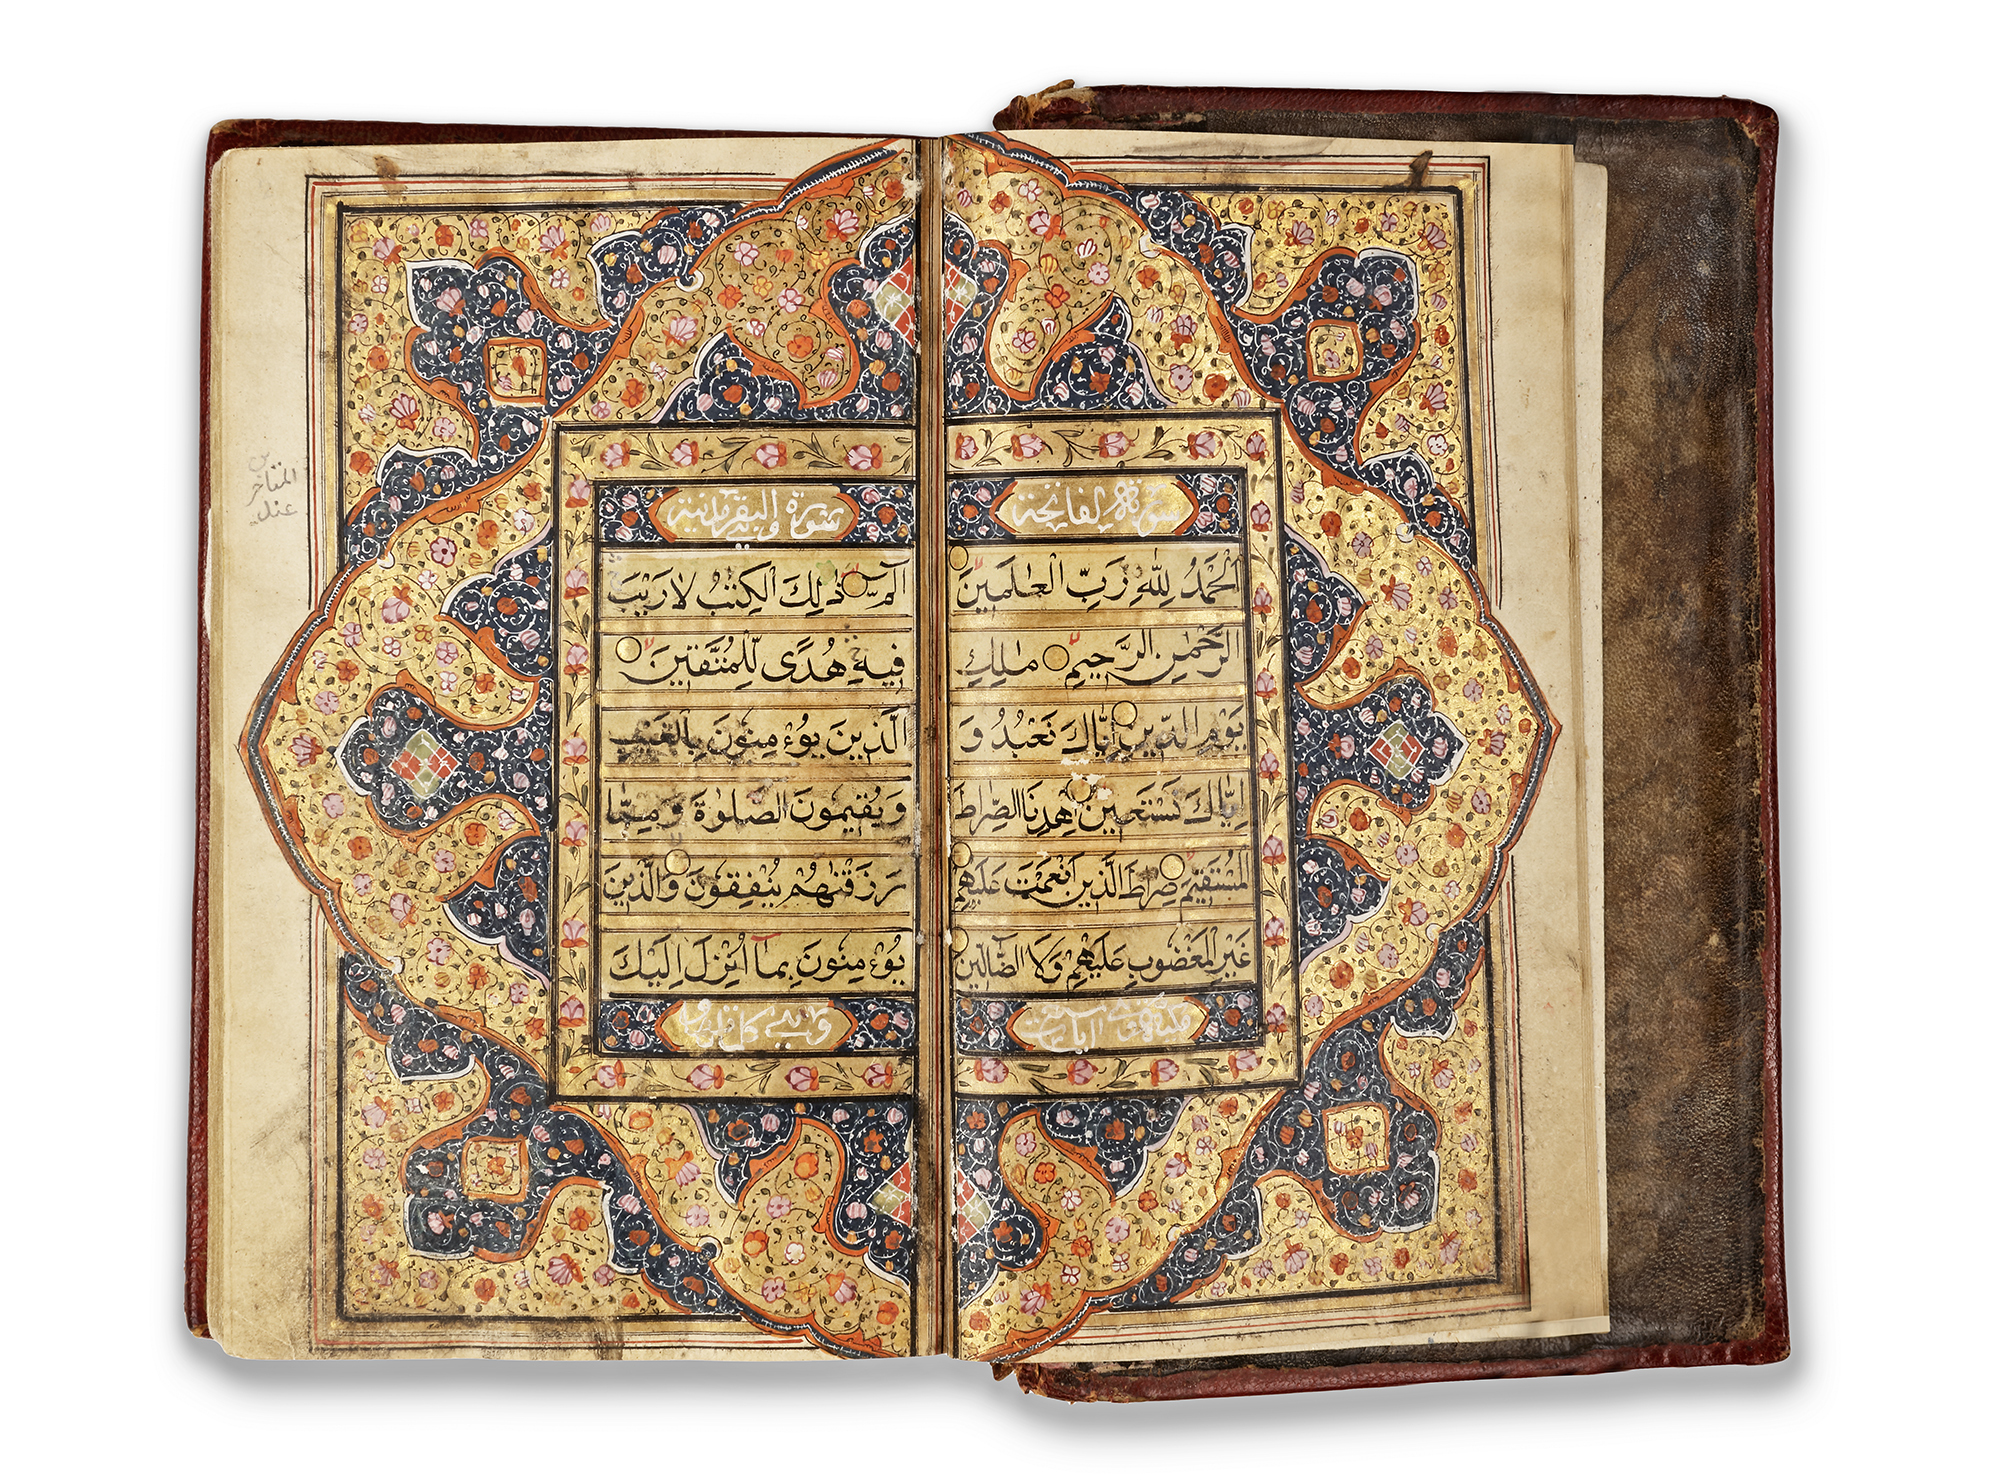 سورة الفاتحة
الْحَمْدُ لِلّٰهِ رَبِّ الْعٰلَمِينَ
الرَّحْمٰنِ الرَّحِيمِ مٰلِكِ
يَوْمِ الدِّينِ اِيَّاكَ نَعْبُدُ وَ
اِيَّاكَ نَسْتَعِينُ اِهْدِنَا الصِّرَاطَ
الْمُسْتَقِيمَ صِرَاطَ الَّذِينَ اَنْعَمْتَ عَلَيْهِمْ
غَيْرِ الْمَغْضُوبِ عَلَيْهِمْ وَلَا الضَّالِّينَ
سورة البقر
الٓمٓ ذٰلِكَ الْكِتٰبُ لَا رَيْبَ
فِيهِ هُدًى لِّلْمُتَّقِينَ
الَّذِينَ يُوْءمِنُونَ بِالْغَيْبِ
وَيُقِيمُونَ الصَّلٰوةَ وَمِمَّا
رَزَقْنٰهُمْ يُنْفِقُونَ وَالَّذِينَ
يُوْءمِنُونَ بِمَآ اُنْزِلَ اِلَيْكَ
المتاخرين
عند